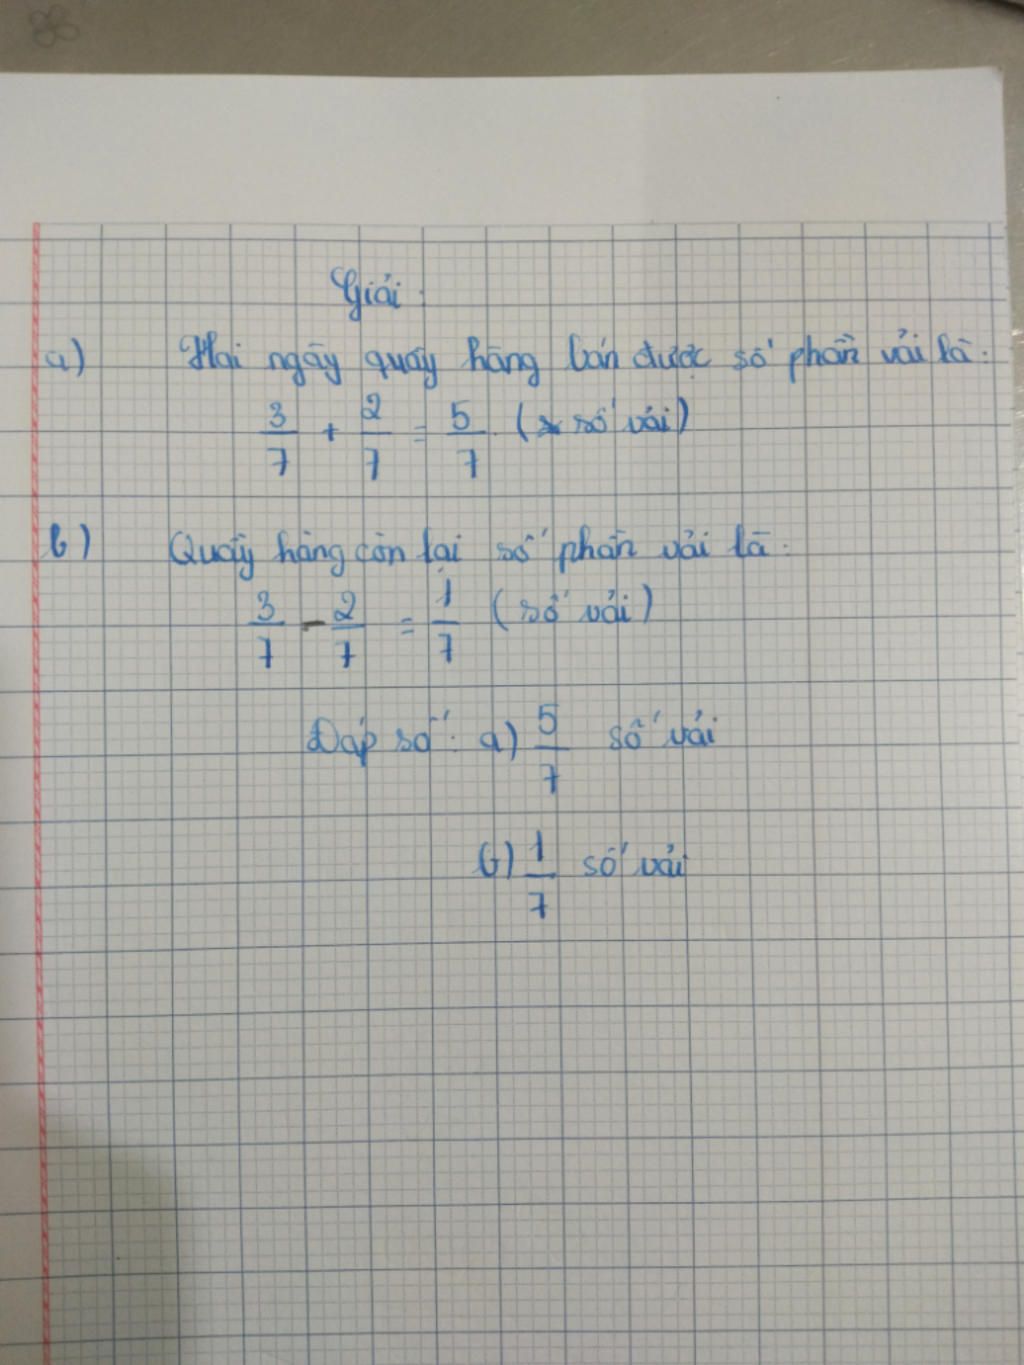 Giải.
a) Hai ngày quầy hàng bán được số phần vải là:
3/7 + 2/7 = 5/7 (số vải)
b) Quầy hàng còn lại số phần vải là:
3/7 - 2/7 = 1/7 (số vải)
Đáp số: a) 5/7 số vải
b) 1/7 số vải